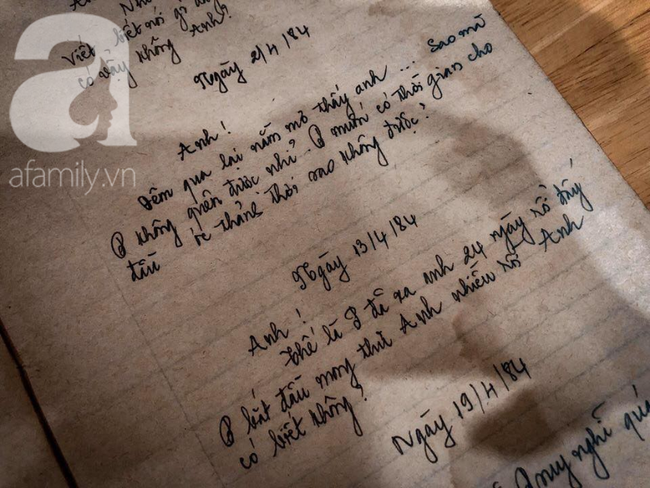 Viết biết nói gì
có vậy không Anh?
Ngày 2/4/84
a
afamily.vn
Anh!
Đêm qua lại nằm mơ thấy anh... Sao mũ
P không quên được nhỉ. P muốn có thời gian cho
đầu óc thảnh thơi sao không được?
Ngày 13/4/84
Anh!
Thế là P đã xa anh 24 ngày rồi đấy
P bắt đầu mong thư Anh nhiều rồi Anh
có biết không?
Ngày 19/4/84
suy nghĩ quá